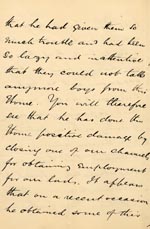 that he had given them so
much trouble and had been
so lazy and inattentive
that they could not take
anymore boys from this
Home. You will therefore
see that he has done the
Home positive damage by
closing one of our channels
for obtaining employment
for our lads. It appears
that on a recent occasion
he obtained some of his